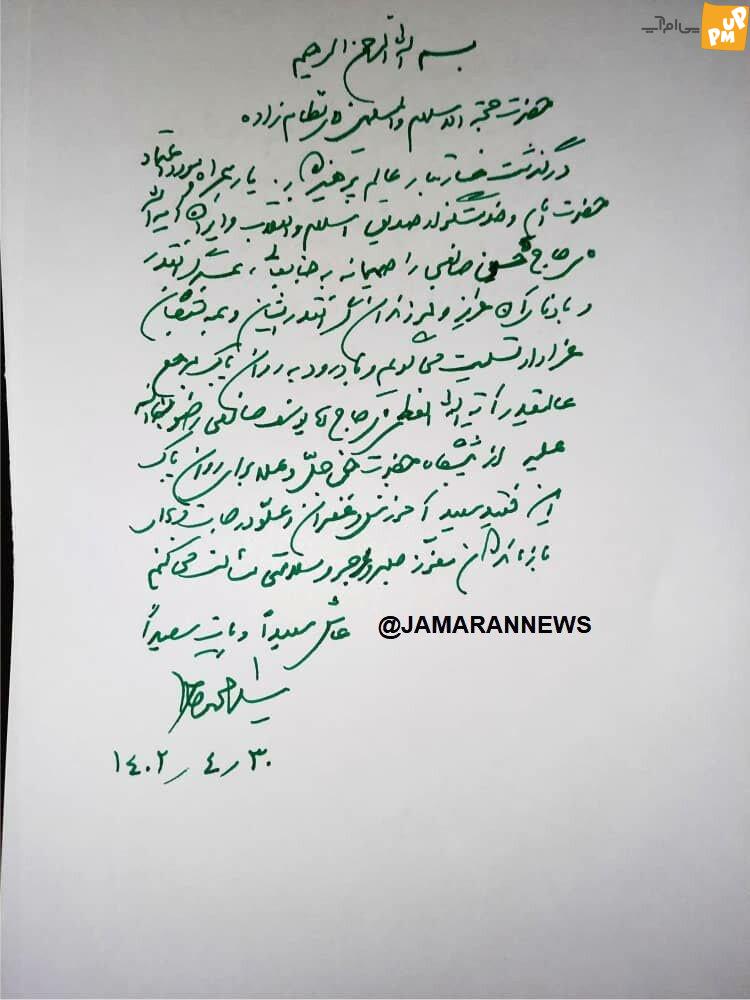 پی‌ام‌آپ
UP
PM
بسم الله الرحمن الرحیم
حضرت حجة الاسلام والمسلمین آقای نظام زاده
درگذشت خسارتبار عالم پرهیزگار، یار همراه و مورد اعتماد
حضرت امام و خدمتگزار صدیق اسلام و انقلاب و ایران آیة الله
حاج حسن صانعی را صمیمانه به جنابعالی، همسر گرانقدر
و بازماندگان عزیز و فرزندان گرانقدر ایشان و همه فقیدان
عزادار تسلیت می گویم و با درود به روان پاک مرجع
عالیقدر آیة الله العظمی حاج آقا یوسف صانعی رضوان الله
علیه از پیشگاه حضرت حق جلّ و علا برای روان پاک
این فقید سعید آمرزش و غفران و علوّ درجات و برای
بازماندگان معزّز صبر و اجر و سلامتی مسئلت می کنم
عاش سعیداً و مات سعیداً
@JAMARANNEWS
سید محمد خاتمی
۱۴۰۲/۴/۳۰